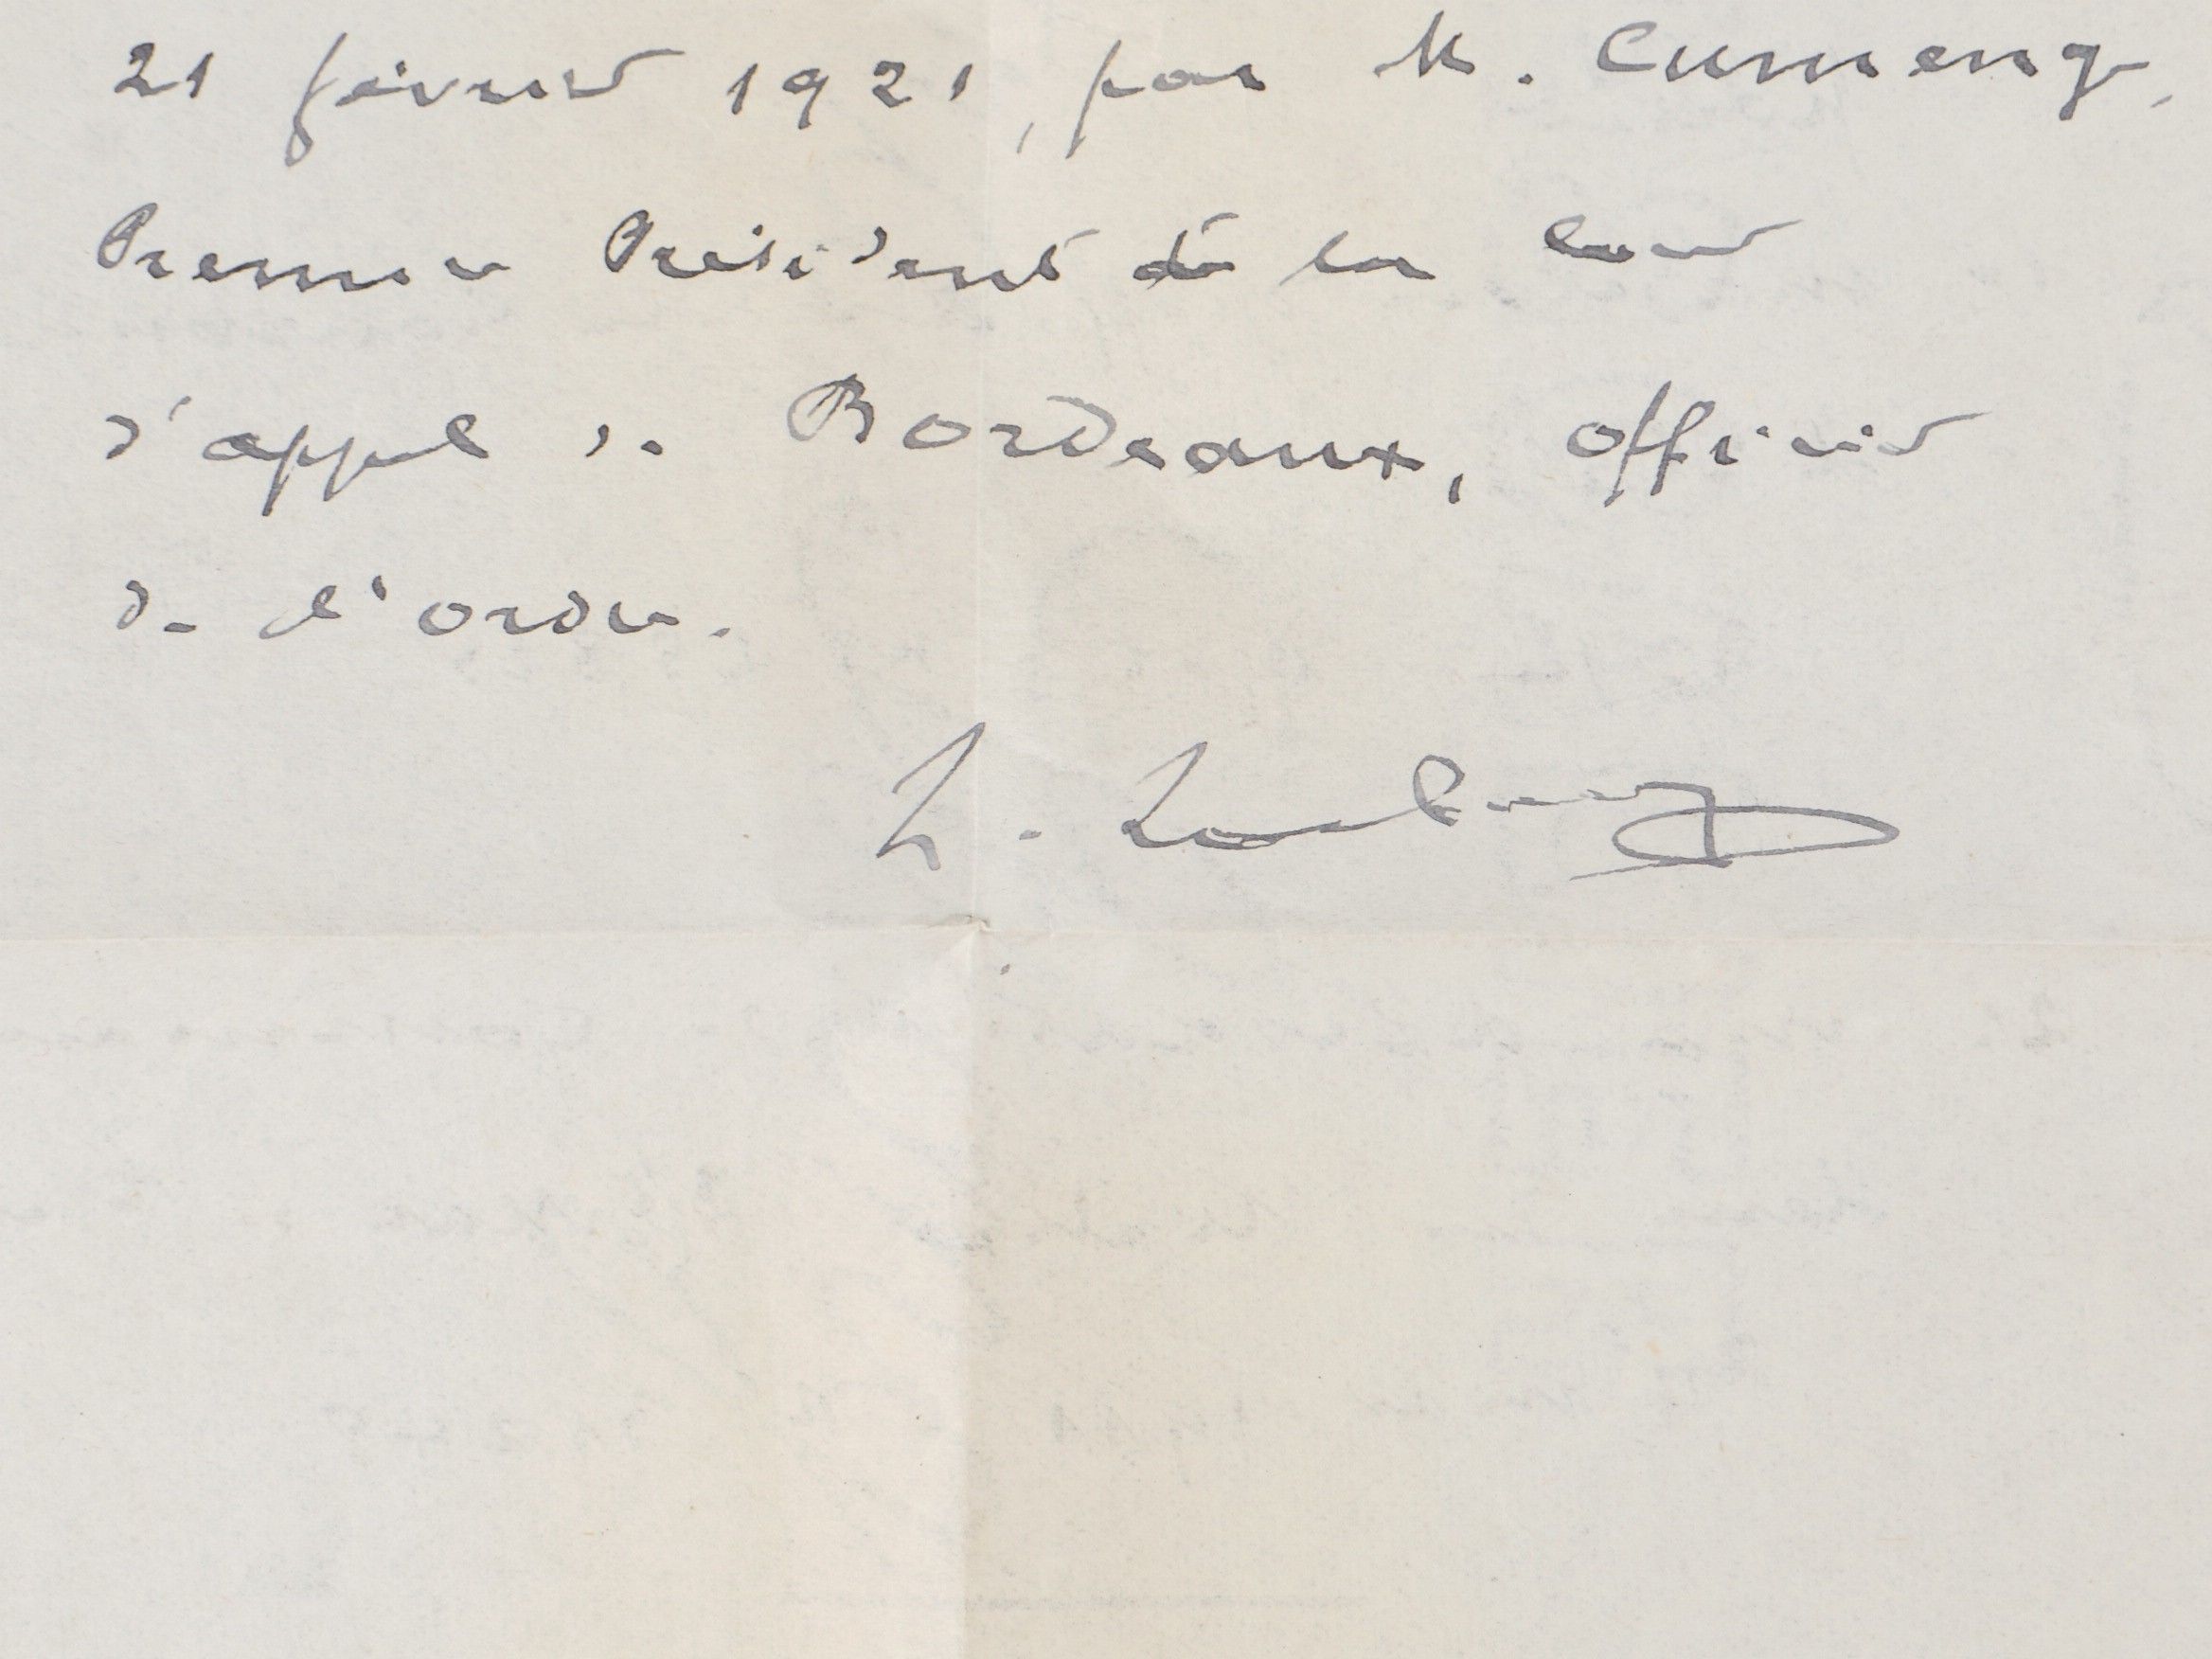 21 février 1921, par M. Cumenge,
Premier Président de la Cour
d'appel de Bordeaux, officier
de l'ordre.